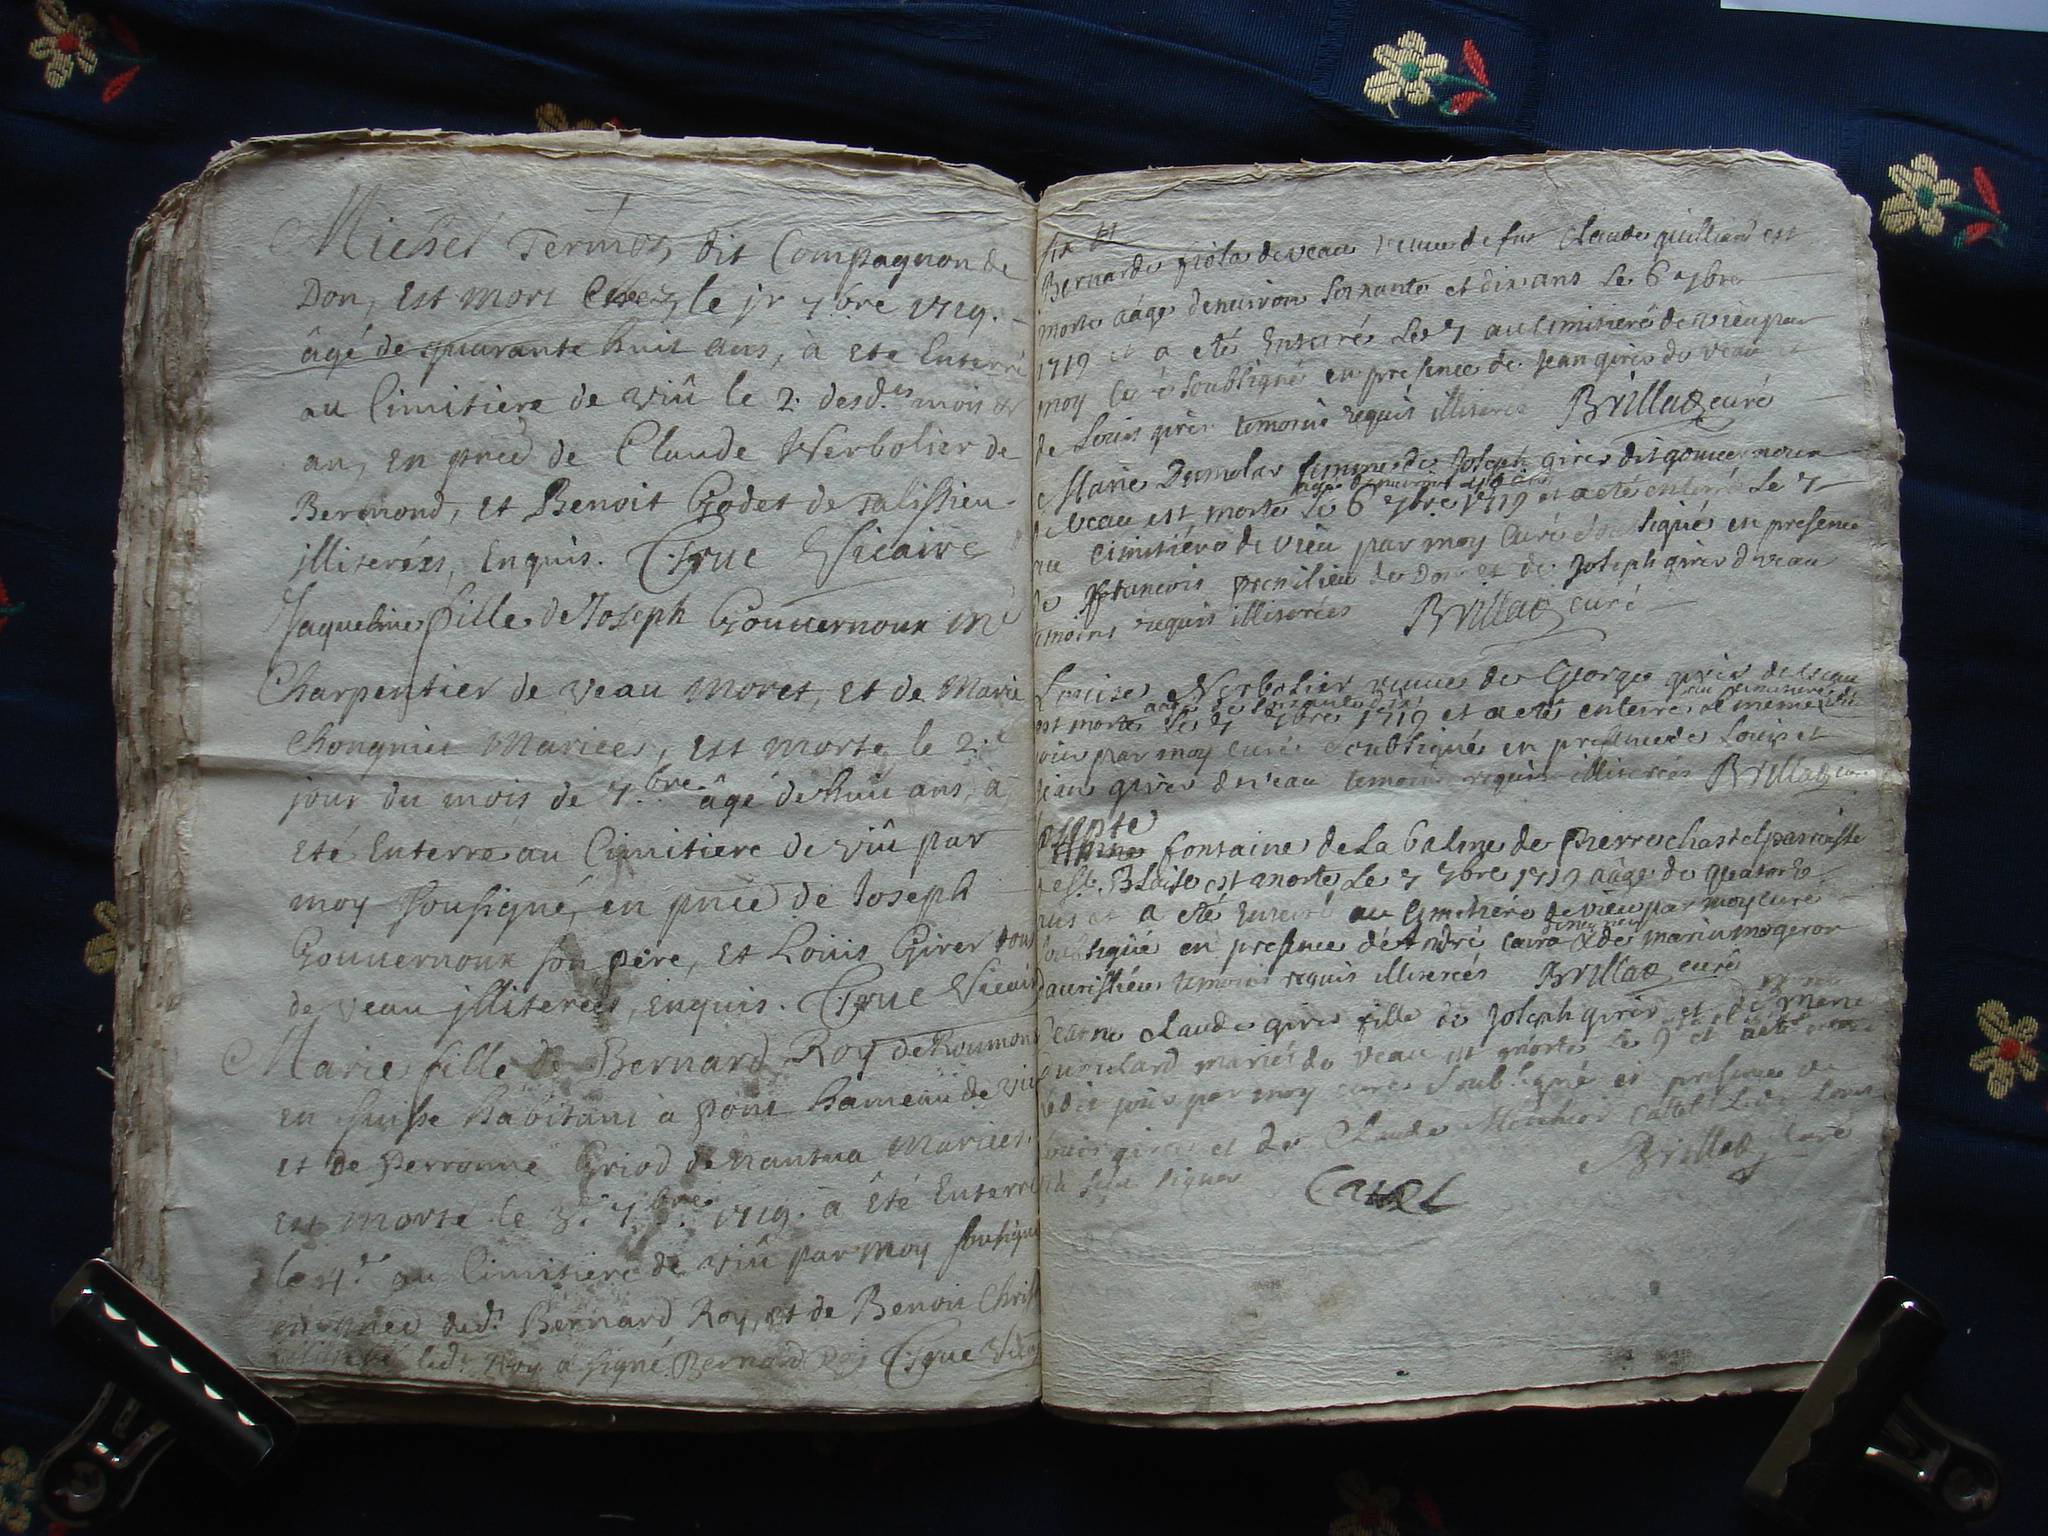 Michel Termoz dit Compagnon de
Don, Est mort le jr 7bre 1719.
âgé de quarante huit ans, à Eté Enterré
au Cimitiere de viû le 2. desd.es mois &
an, en pnce de Claude Werbolier de
Bermond, et Benoit Godet de Talissieu
illiterées, Enquis. Crue Vicaire
Jaqueline fille de Joseph Gouuernoux me
Charpentier de veau Moret, et de Marie
Mariees, Est morte le 2.e
jour du mois de 7.bre âgé de huit ans, à
eté Enterre au Cimitiere de viû par
moy sousigné, en pnce de Joseph
Gouuernoux son père, et Loüis Girer tous
de veau illiterées, enquis. Crue Vicaire
Marie fille de Bernard Roy de Roumon
en suisse habitant à pont hameau de viû
et de perronne Griod de Nantua Mariees
Est Morte le 3.e 7bre 1719. à Été Enterré
le 4.e au Cimitiere de viû par moy sousigné
en pnce dud.t Bernard Roy, et de Benoit Christ
led.t Roy a signé Bernard Roy Crue Vicaire
Bernarde fiola de veau veuue de fut Claude guilliard est
morte aâge denuiron soixante et dix ans le 6 7bre
1719 et a eté Enterré le 7 au Cimitieré de vieu par
moy curé soubsigné en presence de Jean girer de veau et
de Louis girer temoins requis illiterés Brillat curé
Marie Dumolar femme de Joseph girer dit gouuernoux
aâge denuiron
de veau est morte le 6 7bre 1719 et a eté enterré le 7
au cimitiéré de vieu par moy Curé soubsigné en presence
de francois premilieu de Don et de Joseph girer de veau
temoins requis illiterées Brillat curé
Louise Verbolier veuue de George girer de veau
aâge de soixante dix
au cimitiere de
est morte le 7 7bre 1719 et a eté enterré le meme
par moy curé soubsigné en presence de Louis et
jean girer de veau temoins requis illiterées Brillat curé
fontaine de La balme de Pierre chastel paroisse
de st. Blaise est morte le 7 7bre 1719 aâge de quatorze
ans et a eté Enterré au Cimitiéré de vieu par moy curé
soubsigné en presence de André caire & de marin mogeron
temoins requis illiterées Brillat curé
Jeanne Claude girer fille de Joseph girer et de Marie
mariés de veau est morte le 9 et a eté
le dix par moy curé soubsigné en presence de
Louis girer et de Claude Melchior Catel
signer Brillat Curé
Catel